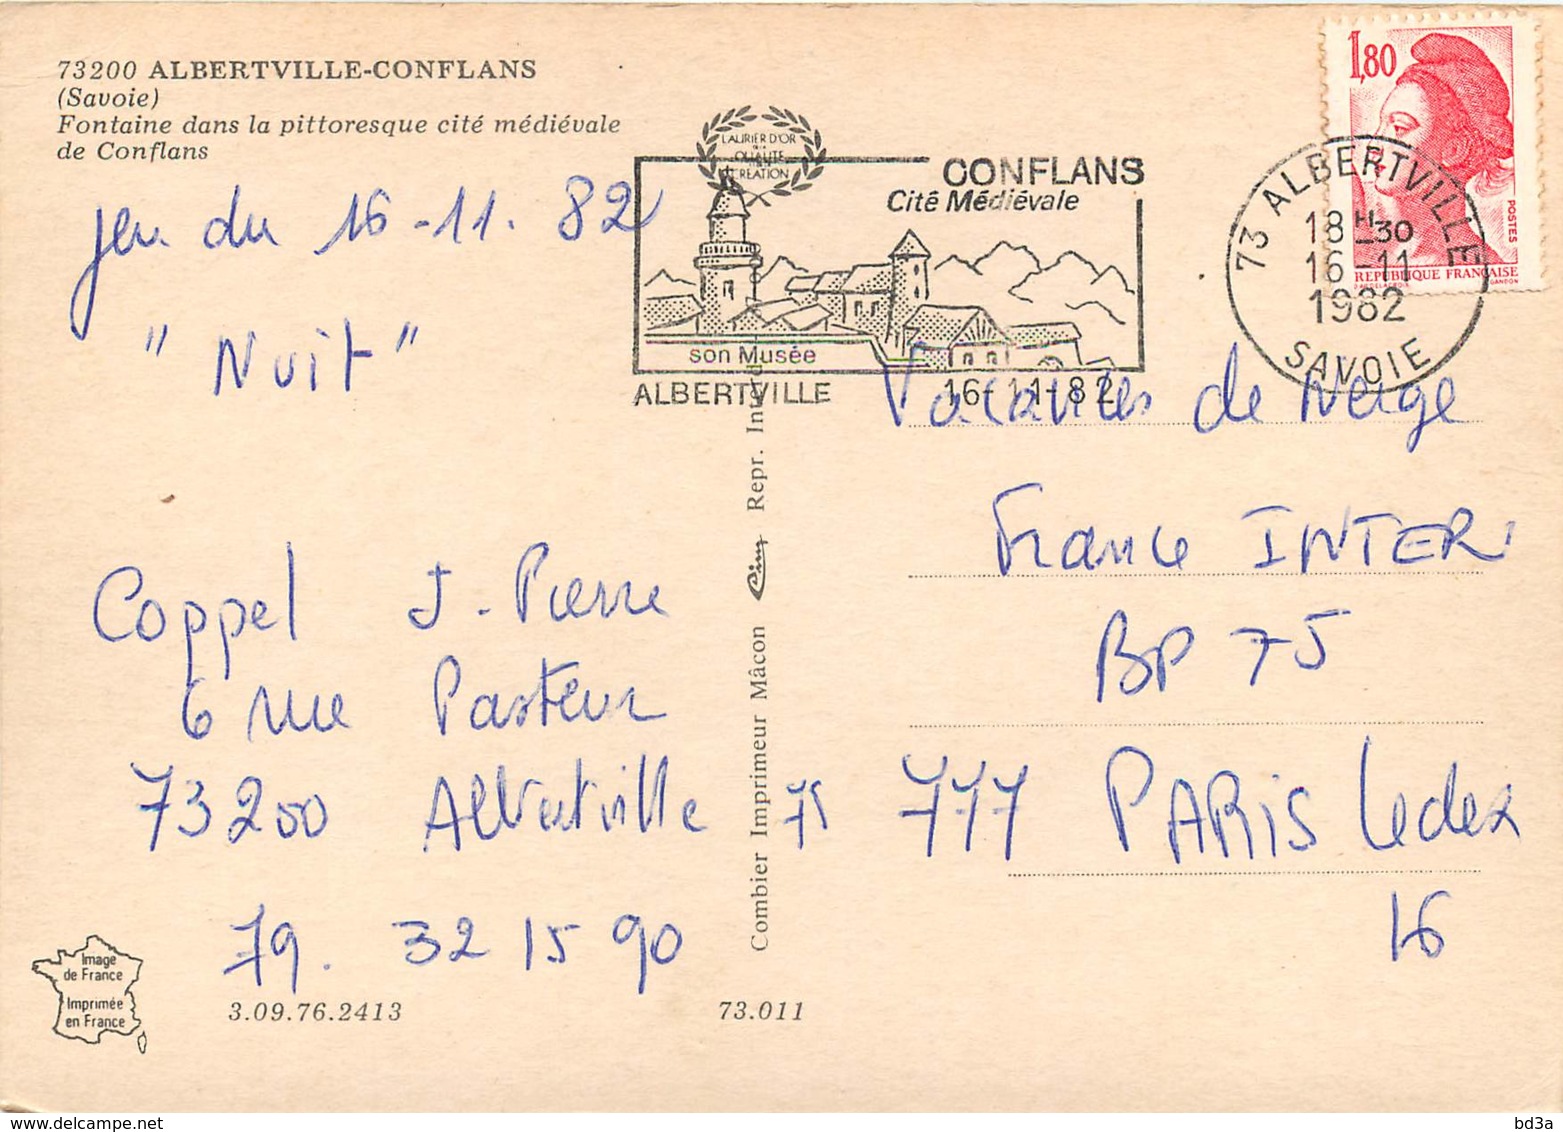 73200 ALBERTVILLE-CONFLANS
(Savoie)
Fontaine dans la pittoresque cité médiévale
de Conflans
jeu du 16-11.82
"Nuit"
Coppel J-Pierre
6 rue Pasteur
73200 Albertville
79. 32 15 90
Image
de France
Imprimée
en France
3.09.76.2413
73.011
Combier Imprimeur Mâcon Cim Repr. Interd.
LAURIER D'OR
QUALITE
CREATION
CONFLANS
Cité Médiévale
son Musée
ALBERTVILLE 16-11-82
1,80
POSTES
REPUBLIQUE FRANÇAISE
GANDON
73 ALBERTVILLE
18H30
16-11
1982
SAVOIE
Vacances de Neige
France INTER
BP 75
75 777 PARIS Cedex
16
bd3a